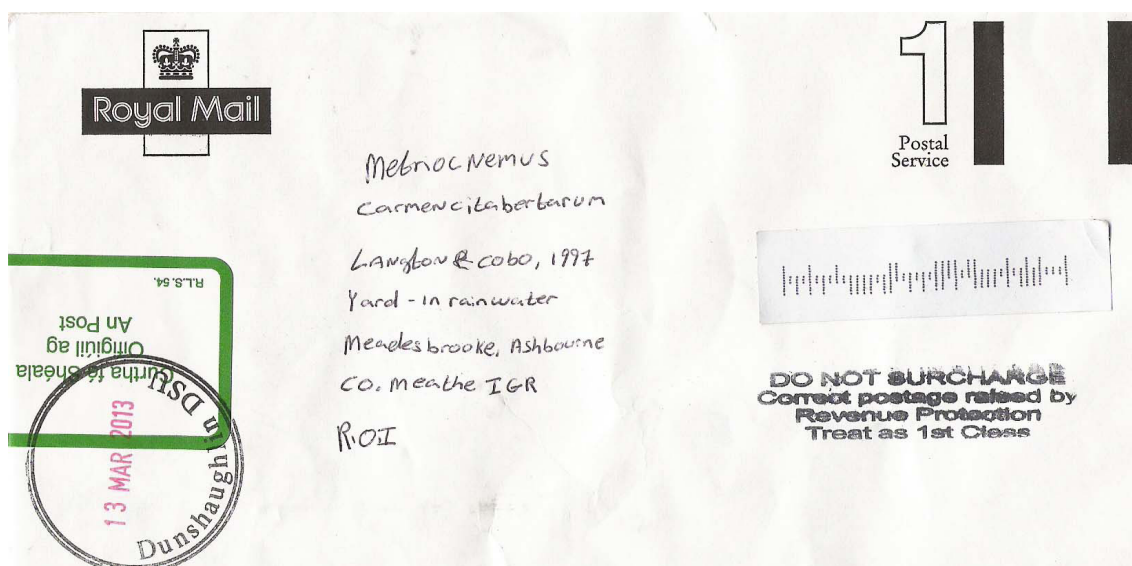 Royal Mail
1
Postal
Service
Metriocnemus
carmencitabertarum
Langton & cobo, 1997
Yard - in rainwater
Meadesbrooke, Ashbourne
Co. Meathe IGR
R.O.I
R.L.S. 54.
Curtha fá Shéala
Oifigiúil ag
An Post
Dunshaughlin DSU
13 MAR 2013
DO NOT SURCHARGE
Correct postage raised by
Revenue Protection
Treat as 1st Class